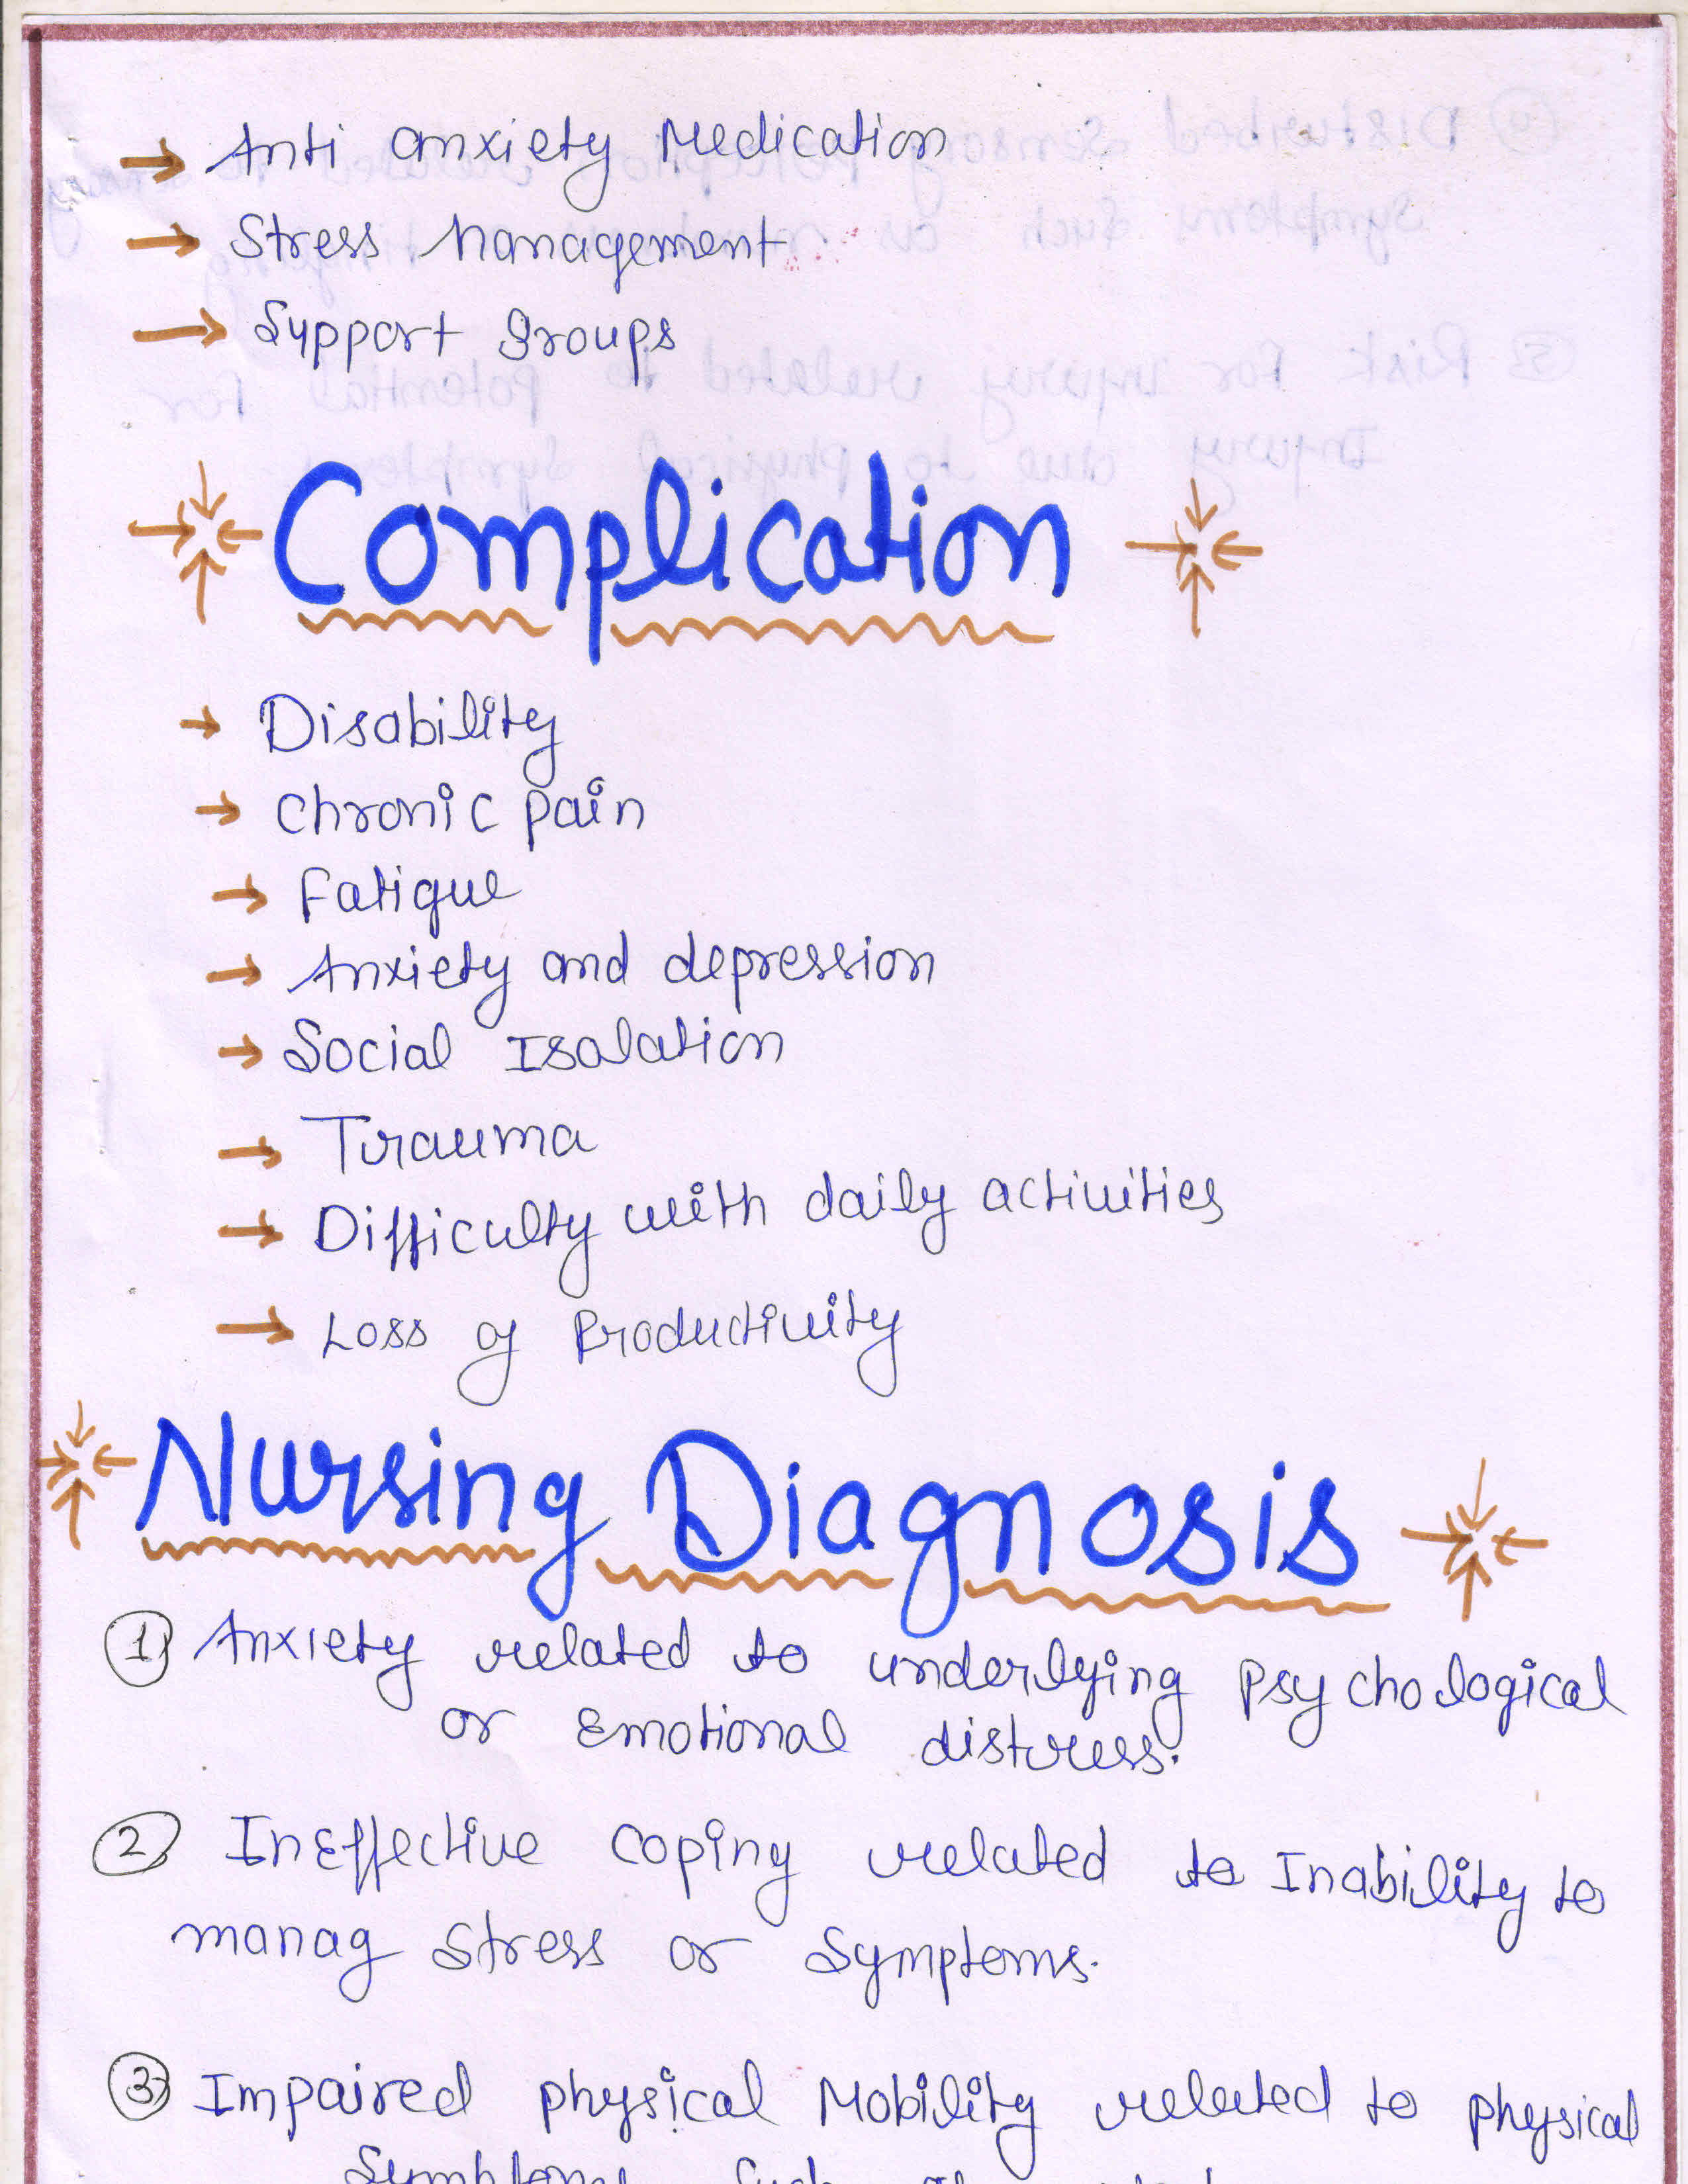 → Anti anxiety Medication
→ Stress Management
→ Support groups
Complication
→ Disability
→ Chronic pain
→ Fatigue
→ Anxiety and depression
→ Social Isolation
→ Trauma
→ Difficulty with daily activities
→ Loss of Productivity
Nursing Diagnosis
① Anxiety related to underlying Psychological
or Emotional distress.
② Ineffective Coping related to Inability to
manag Stress or Symptoms.
③ Impaired physical Mobility related to physical
Symptoms Such as